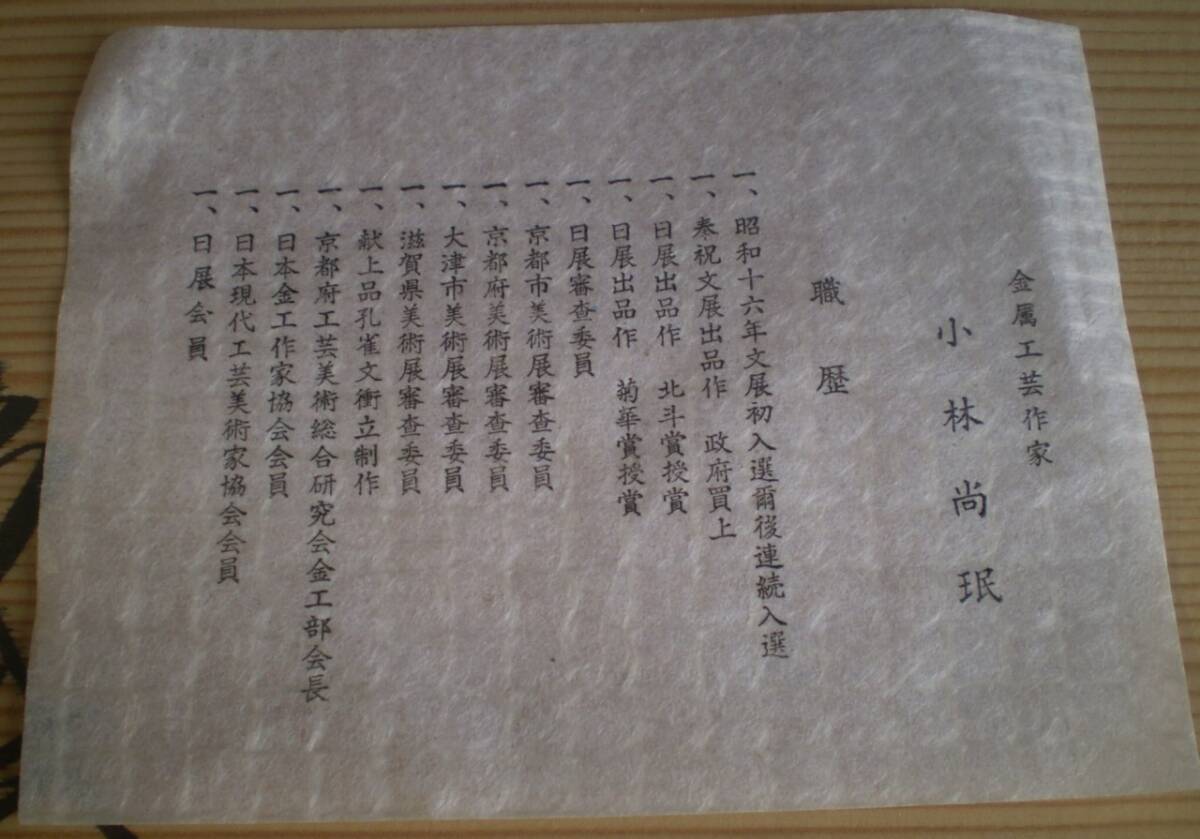 金属工芸作家
小林尚珉
職歴
一、昭和十六年文展初入選爾後連続入選
一、奉祝文展出品作　政府買上
一、日展出品作　北斗賞授賞
一、日展出品作　菊華賞授賞
一、日展審査委員
一、京都市美術展審査委員
一、京都府美術展審査委員
一、大津市美術展審査委員
一、滋賀県美術展審査委員
一、献上品孔雀文衝立制作
一、京都府工芸美術総合研究会金工部会長
一、日本金工作家協会会員
一、日本現代工芸美術家協会会員
一、日展会員